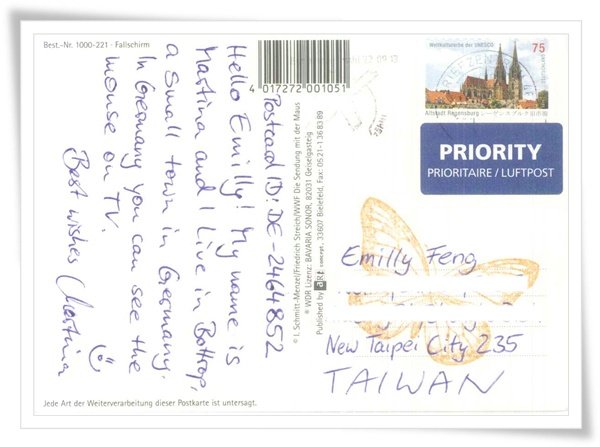 Best.-Nr. 1000-221 · Fallschirm
4 017272 001051
22.09.13
Weltkulturerbe der UNESCO
75
Altstadt Regensburg レーゲンスブルク旧市街
PRIORITY
PRIORITAIRE / LUFTPOST
Postcard ID: DE-2464852
Hello Emilly! My name is
Martina and I live in Bottrop,
a small town in Germany.
In Germany you can see the
mouse on TV.
Best wishes Martina
© I. Schmitt-Menzel/Friedrich Streich/WWF Die Sendung mit der Maus
® WDR Lizenz: BAVARIA SONOR, 82031 Geiselgasteig
Published by art concept, 33607 Bielefeld, Fax: 05 21-1 36 83 89
Emilly Feng
New Taipei City 235
TAIWAN
Jede Art der Weiterverarbeitung dieser Postkarte ist untersagt.